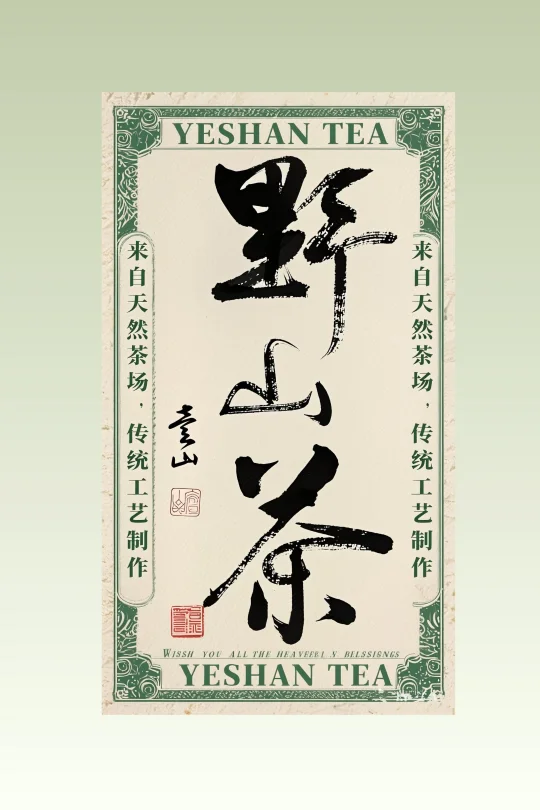 YESHAN TEA
野山茶
来自天然茶场，传统工艺制作
来自天然茶场，传统工艺制作
WISSH YOU ALL THE HEAVEFEL N BELSSIGNGS
YESHAN TEA